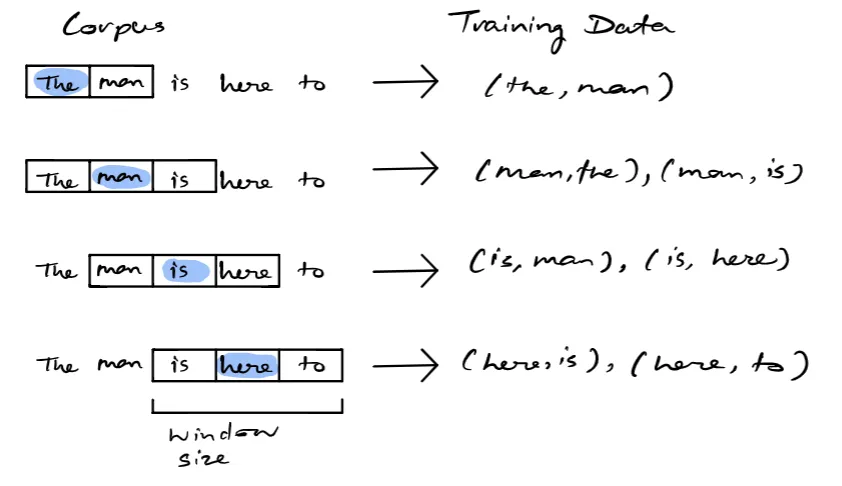 Corpus Training Data
The man is here to → (the, man)
The man is here to → (man, the), (man, is)
The man is here to → (is, man), (is, here)
The man is here to → (here, is), (here, to)
window
size